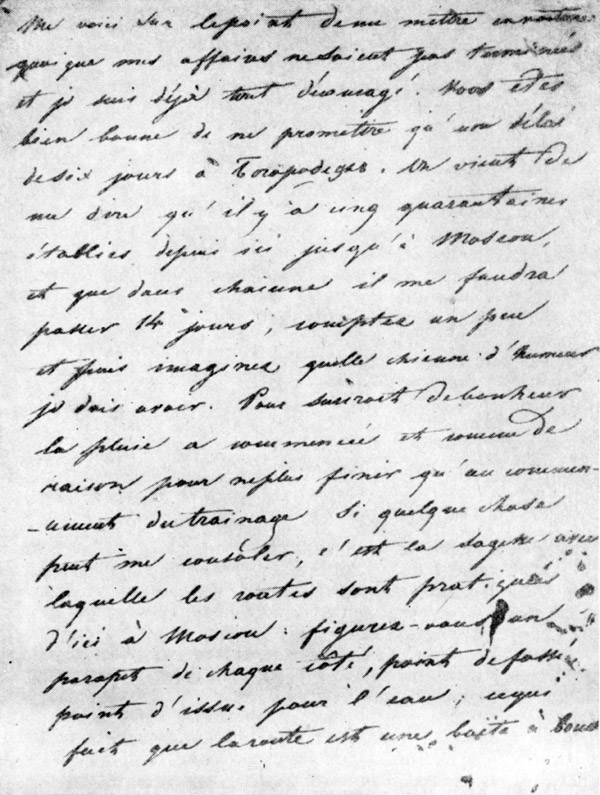 Me voici sur le point de me mettre en route
quoique mes affaires ne soient pas terminées
et je suis déjà tout découragé. Vous êtes
bien bonne de ne promettre qu'un délai
de six jours à Bogorodsk. On vient de
me dire qu'il y a cinq quarantaines
établies depuis ici jusqu'à Moscou,
et que dans chacune il me faudra
passer 14 jours; comptez un peu
et puis imaginez quelle chienne d'humeur
je dois avoir. Pour surcroit de bonheur
la pluie a commencée et comme de
raison pour ne plus finir qu'au commen-
-cement du trainage Si quelque chose
peut me consoler, c'est la sagesse avec
laquelle les routes sont pratiquées
d'ici à Moscou: figurez-vous, un
parapet de chaque côté, point de fossé,
point d'issue pour l'eau; ce qui
fait que la route est une boîte à boue